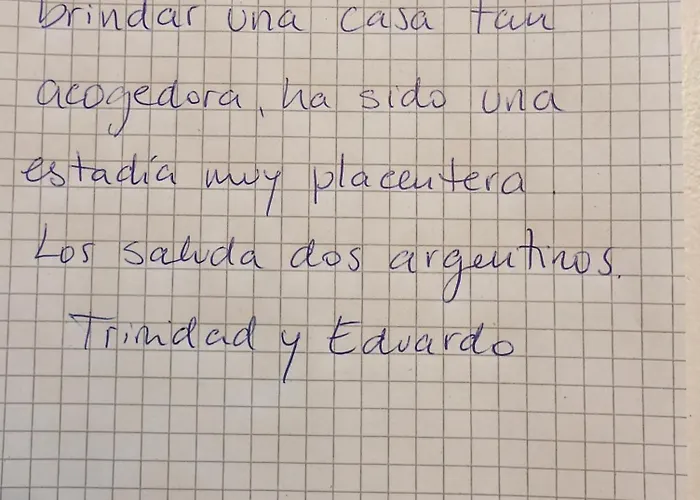 brindar una casa tan
acogedora, ha sido una
estadía muy placentera.
Los saluda dos argentinos.
Trinidad y Eduardo